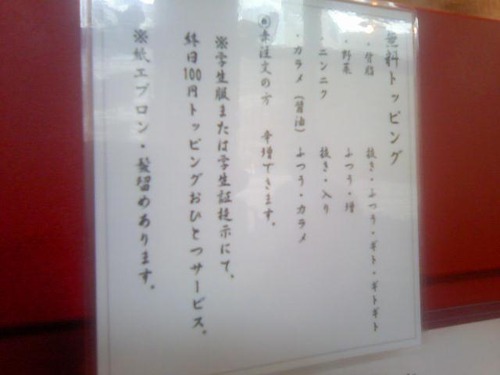 無料トッピング
・背脂　抜き・ふつう・ギト・ギトギト
・野菜　ふつう・増
・ニンニク　抜き・入り
・カラメ（醤油）ふつう・カラメ
注文の方　辛増できます。
※学生服または学生証提示にて、
終日100円トッピングおひとつサービス。
※紙エプロン・髪留めあります。